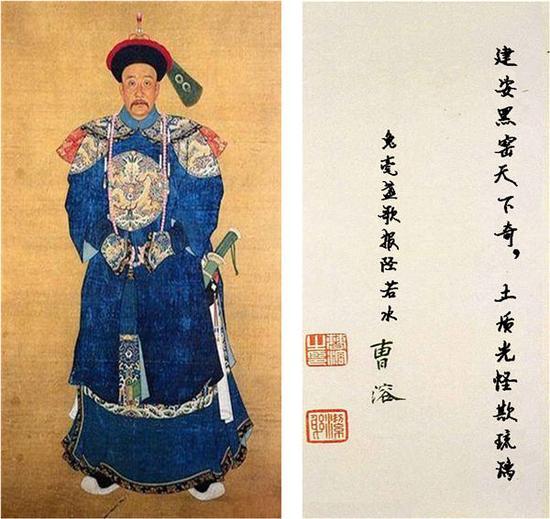 建姿黑窑天下奇，土质光怪欺琉璃
兔毫盏歌报陆若水 曹溶